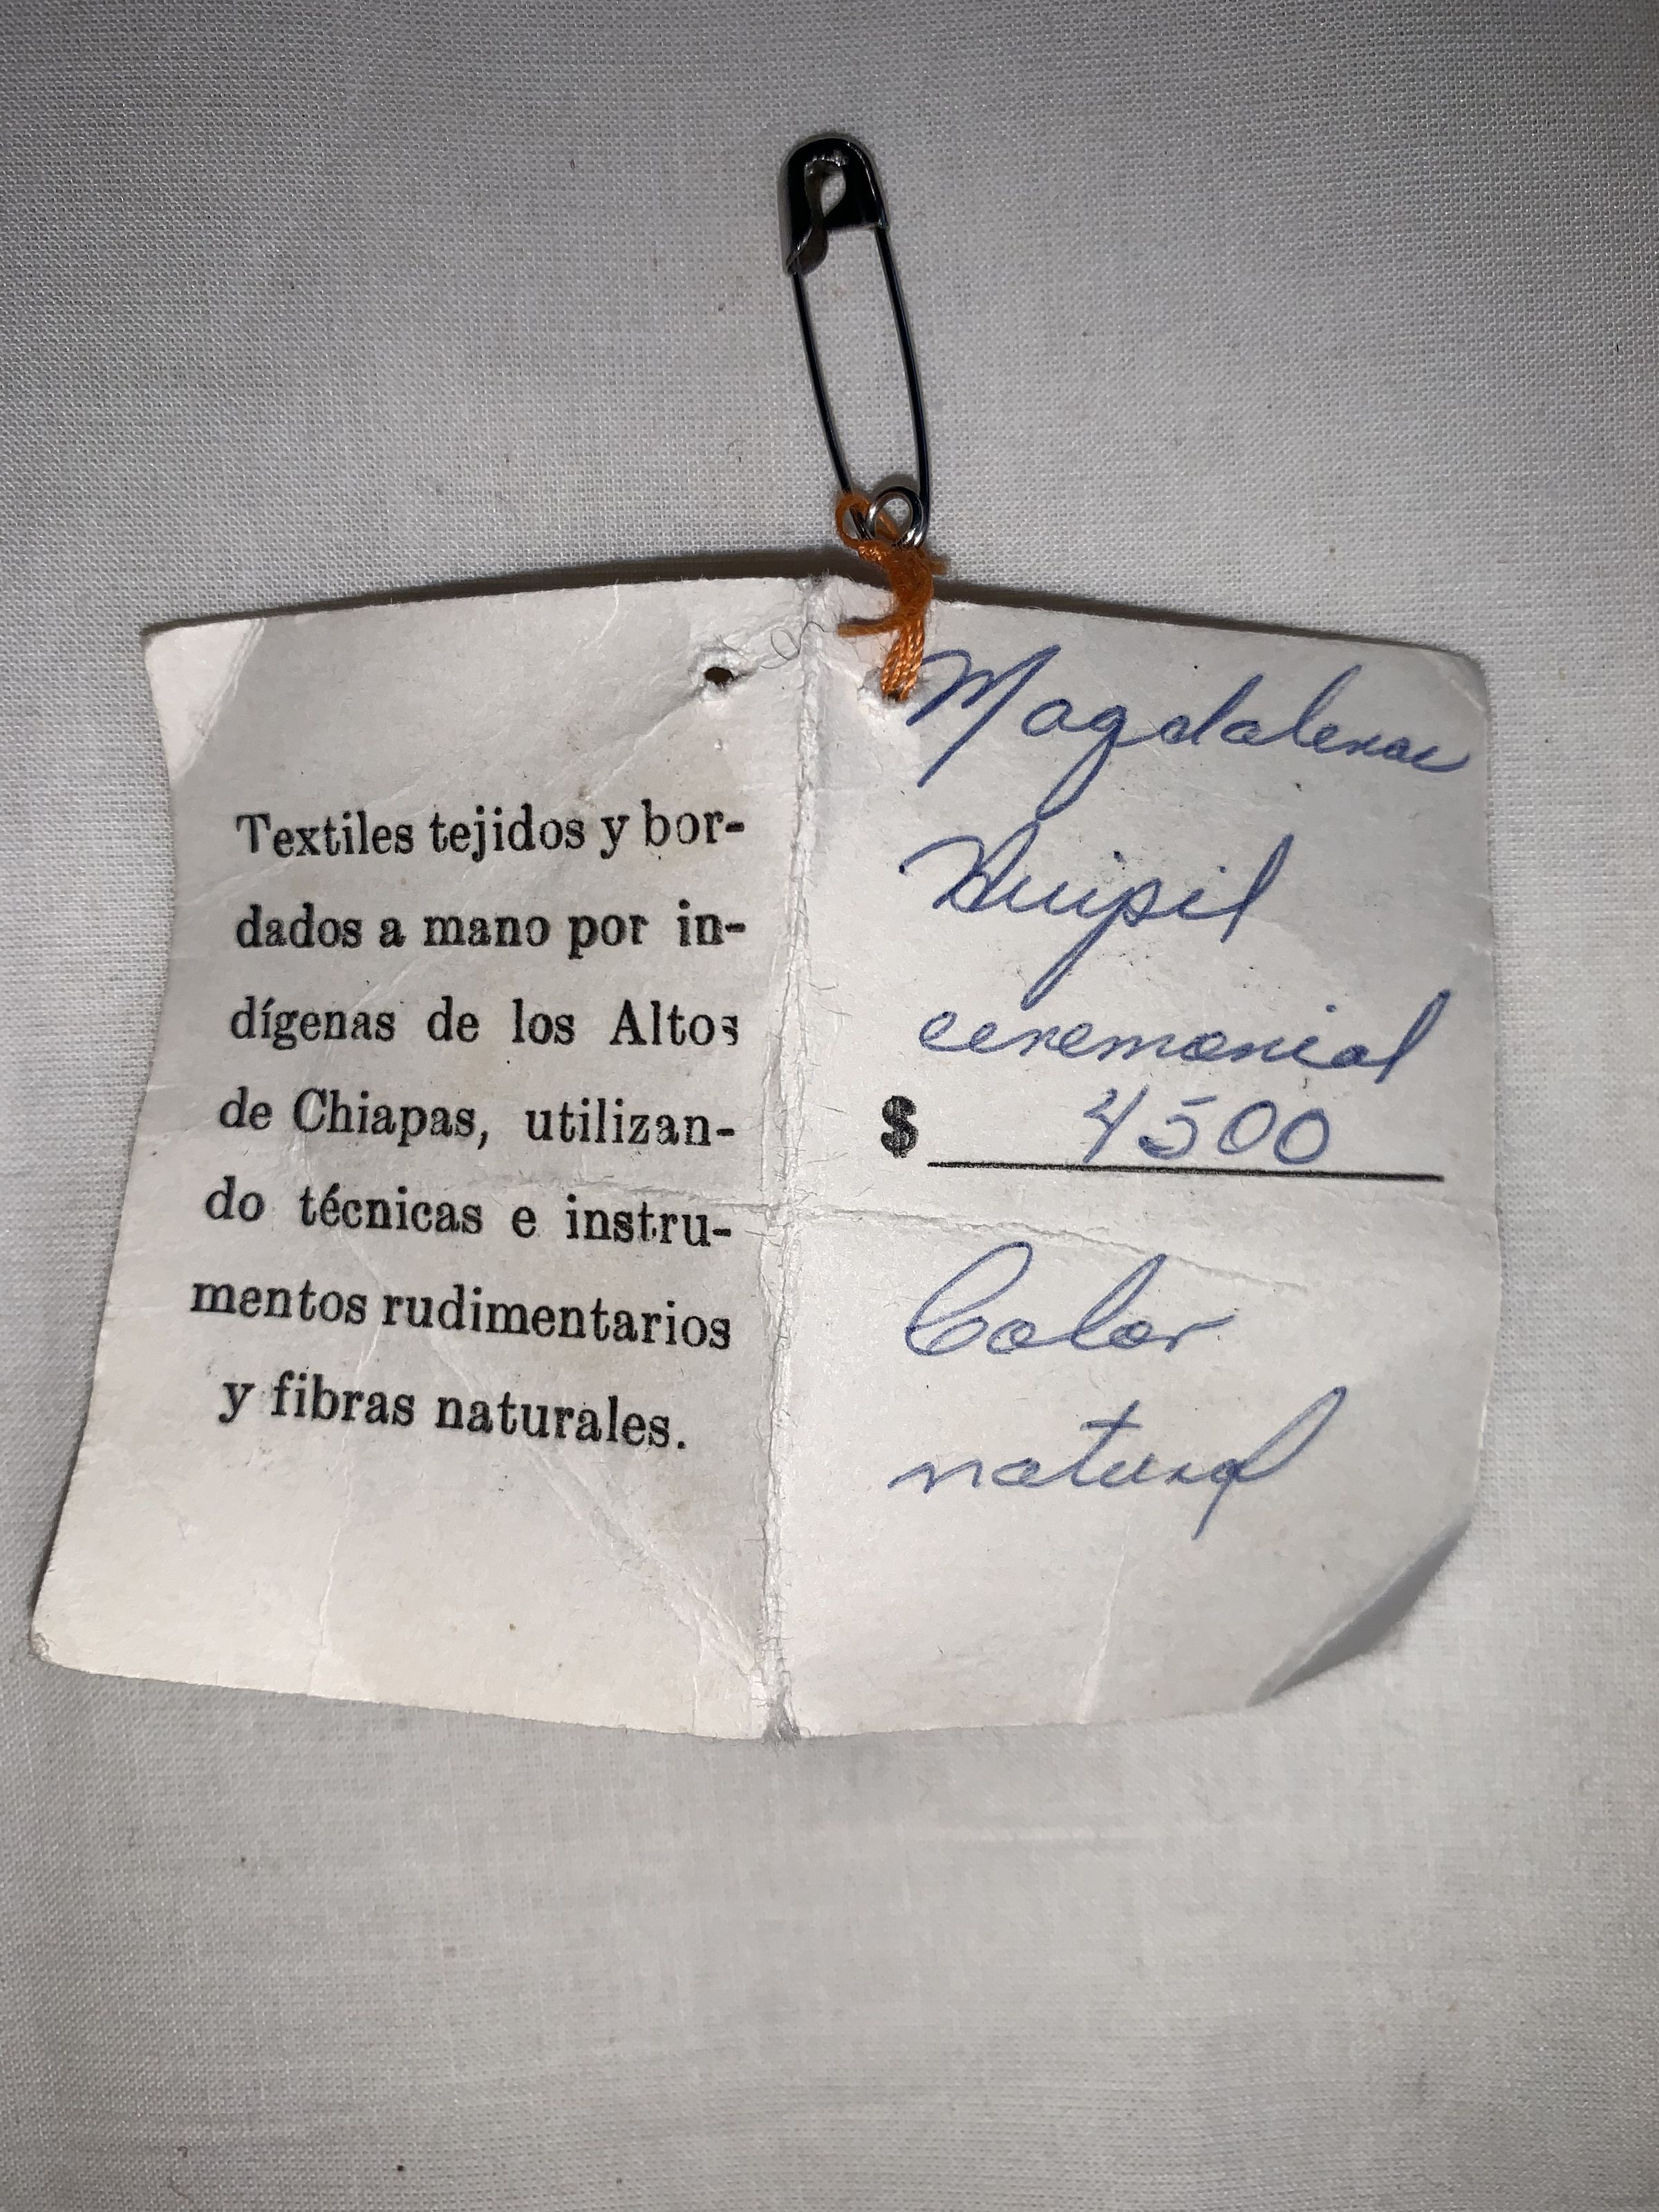 Textiles tejidos y bor-
dados a mano por in-
dígenas de los Altos
de Chiapas, utilizan-
do técnicas e instru-
mentos rudimentarios
y fibras naturales.
Magdalenae
Huipil
ceremonial
$ 4500
Color
natural